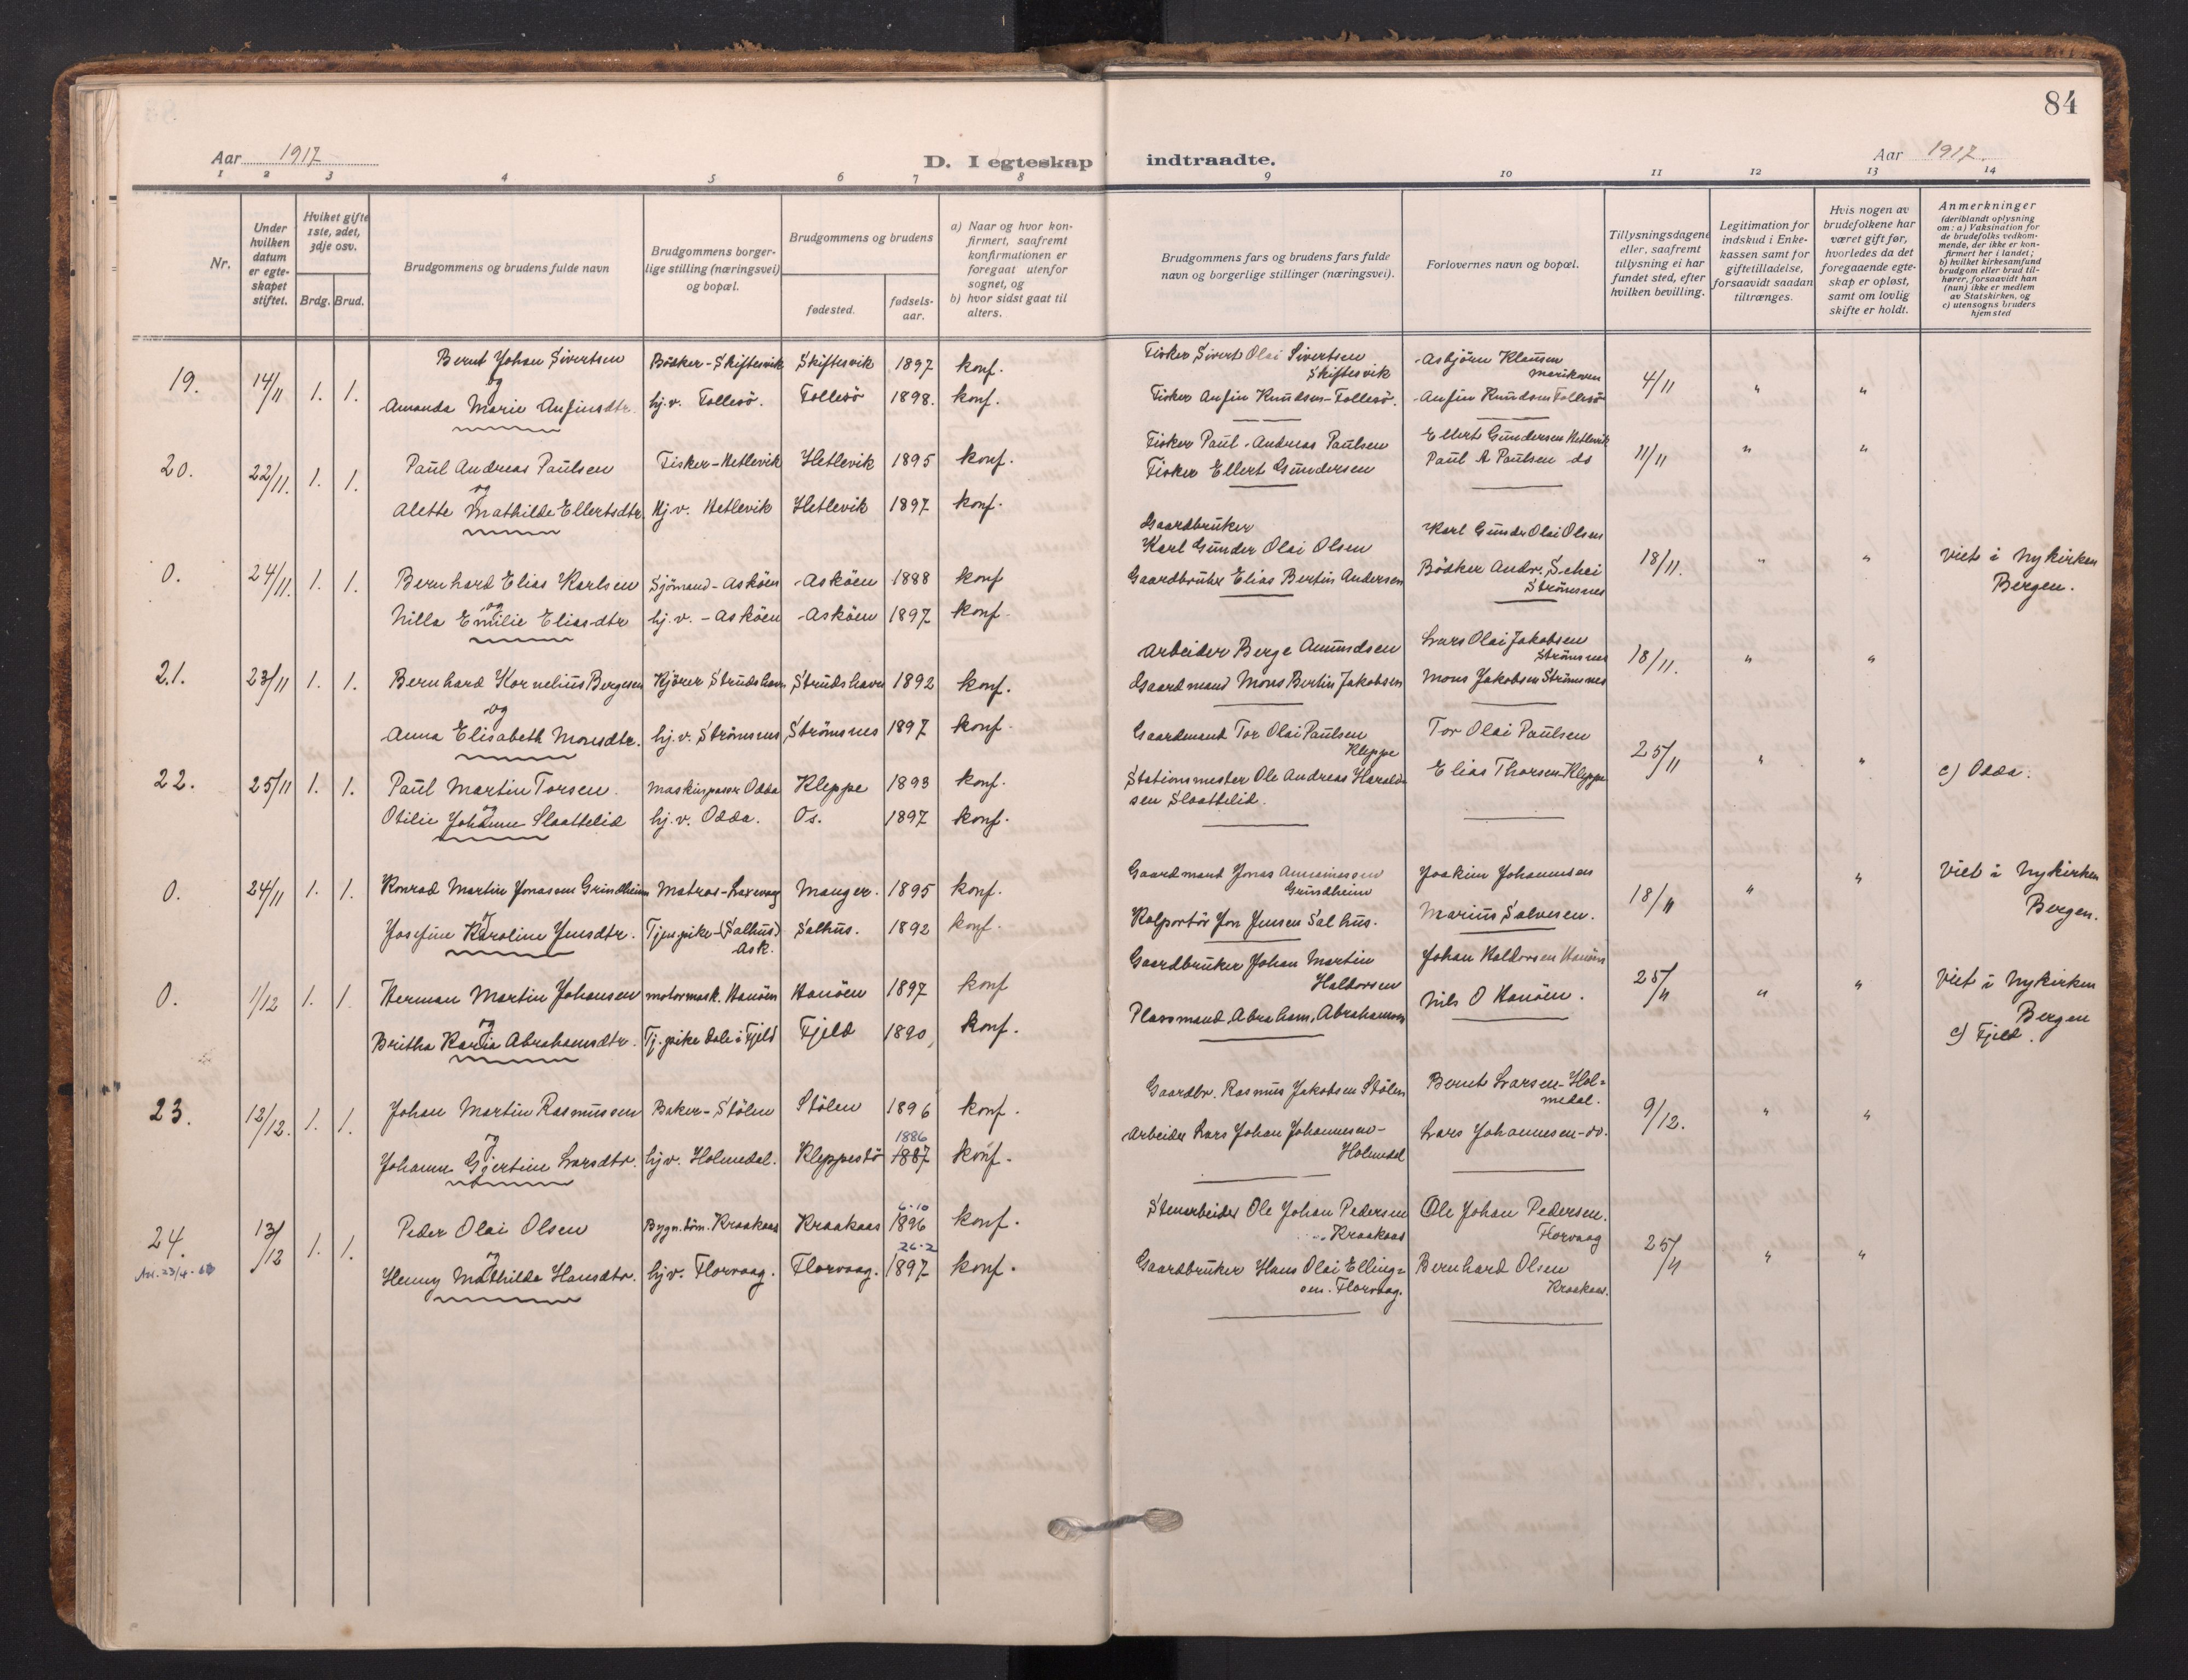 84
Aar 1917
D. I egteskap indtraadte.
Aar 1917.
1 2 3 4 5 6 7 8 9 10 11 12 13 14
Nr.
Under hvilken datum er egteskapet stiftet.
Hvilket gifte 1ste, 2det, 3dje osv.
Brdg. Brud.
Brudgommens og brudens fulde navn
Brudgommens borgerlige stilling (næringsvei) og bopæl.
Brudgommens og brudens
fødested.
fødselsaar.
a) Naar og hvor konfirmert, saafremt konfirmationen er foregaat utenfor sognet, og
b) hvor sidst gaat til alters.
Brudgommens fars og brudens fars fulde navn og borgerlige stillinger (næringsvei).
Forlovernes navn og bopæl.
Tillysningsdagene eller, saafremt tillysning ei har fundet sted, efter hvilken bevilling.
Legitimation for indskud i Enkekassen samt for giftetilladelse, forsaavidt saadan tiltrænges.
Hvis nogen av brudefolkene har været gift før, hvorledes da det foregaaende egteskap er opløst, samt om lovlig skifte er holdt.
Anmerkninger
(deriblandt oplysning om: a) Vaksination for de brudefolks vedkommende, der ikke er konfirmert her i landet;
b) hvilket kirkesamfund brudgom eller brud tilhører, forsaavidt han (hun) ikke er medlem av Statskirken, og
c) utensogns bruders hjemsted
19. 14/11 1. 1. Bernt Johan Sivertsen Bödker-Skiftesvik Skiftesvik 1897 konf. Fisker Sivert Olai Sivertsen Skiftesvik Asbjörn Klausen Marikoven 4/11 " "
og
Amanda Marie Anfinsdtr. hj.v. Follesö. Follesö 1898. konf. Fisker Anfin Knudsen-Follesö. Anfin Knudsen Follesö
20. 22/11. 1. 1. Paul Andreas Paulsen Fisker-Hetlevik Hetlevik 1895 konf. Fisker Paul Andreas Paulsen Ellert Gundersen Hetlevik 11/11 " "
og
Alette Mathilde Ellertsdtr. Hj.v. Hetlevik Hetlevik 1897 konf. Fisker Ellert Gundersen Paul A Paulsen do
0. 24/11. 1. 1. Bernhard Elias Karlsen Sjömand-Asköen Asköen 1888 konf Gaardbruker Karl Gunder Olai Olsen Karl Gunder Olai Olsen 18/11. " " Viet i Nykirken Bergen.
og
Nilla Emilie Eliasdtr hj.v. - Asköen Asköen 1897 konf. Gaardbruker Elias Bertin Andersen Bödker Andr. Schei Strömsnes
21. 23/11 1. 1. Bernhard Kornelius Bergesen Kjörer Strudshavn Strudshavn 1892 konf. Arbeider Berge Amundsen Lars Olai Jakobsen Strömsnes 18/11. " "
og
Anna Elisabeth Monsdtr. hj.v. Strömsnes Strömsnes 1897 konf. Gaardmand Mons Bertin Jakobsen Mons Jakobsen Strömsnes
22. 25/11 1. 1. Paul Martin Torsen. Maskinpasser Odda Kleppe 1893 konf. Gaardmand Tor Olai Paulsen Kleppe Tor Olai Paulsen 25/11 " " c) Odda.
og
Otilie Johanne Slaattelid hj.v. Odda. Os. 1897 konf. Stationsmester Ole Andreas Haraldsen Slaattelid. Elias Thorsen-Kleppe
0. 24/11 1. 1. Konrad Martin Jonassen Grindheim Matros-Laxevaag Manger. 1895 konf. Gaardmand Jonas Grindheim Joakim Johannesen 18/11 " " Viet i Nykirken Bergen.
og
Josefine Karoline Jensdtr. Tjenpike-(Salhus) Ask. Salhus. 1892 konf. Kolportör Jon Jensen Salhus. Marius Salvesen.
0. 1/12 1. 1. Herman Martin Johansen motormask. Hanöen Hanöen 1897 konf Gaardbruker Johan Martin Haldorsen Johan Haldorsen Hanöen 25/11 " " Viet i Nykirken Bergen
og
Britha Karia Abrahamsdtr. Tj.pike Dale i Fjeld Fjeld 1890, konf. Plassmand Abraham Abrahamsen Nils O Hanöen. c) Fjeld.
23. 12/12. 1. 1. Johan Martin Rasmussen Baker-Stölen Stölen 1896 konf. Gaardbr. Rasmus Jakobsen Stölen Bernt Larsen-Holmedal. 9/12. " "
og 1886
Johanne Gjertine Larsdtr. hjv. Holmedal. Kleppestö 1887 konf. Arbeider Lars Johan Johannesen-Holmedal Lars Johannesen-do.
24. 13/12 1. 1. Peder Olai Olsen Bygn.töm. Kraakaas Kraakaas 6-10 1896 konf. Stenarbeider Ole Johan Pedersen Kraakaas Ole Johan Pedersen. Florvaag 25/11 " "
og
Henny Mathilde Hansdtr. hjv. Florvaag. Florvaag. 26-2 1897 konf. Gaardbruker Hans Olai Ellingsen. Florvaag. Bernhard Olsen Kraakaas.